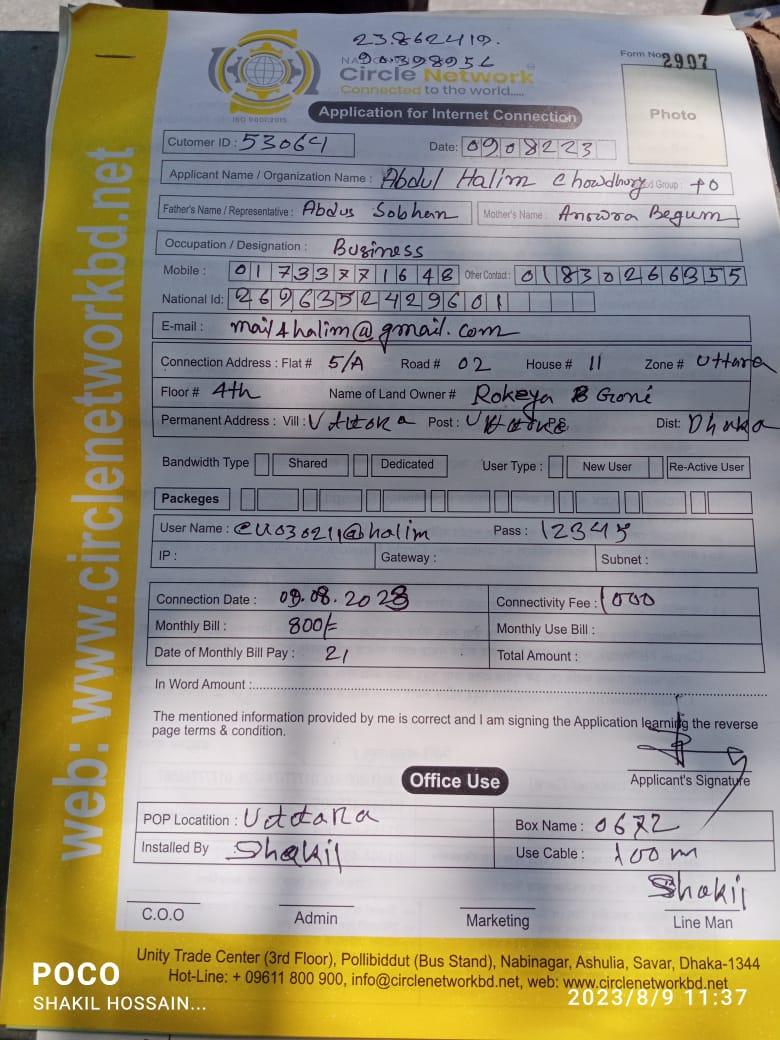 23.862419.
90.398952
Form No. 2907
Circle Network
Connected to the world.....
ISO 9001:2015
Photo
Application for Internet Connection
Cutomer ID : 53064 Date: 0908223
Applicant Name / Organization Name : Abdul Halim Chowdhury d Group : +O
Father's Name / Representative : Abdus Sobhan Mother's Name : Anowra Begum
Occupation / Designation : Business
Mobile : 01733771648 Other Contact : 01830266355
National Id: 2696352429601
E-mail : mail4halim@gmail.com
Connection Address : Flat # 5/A Road # 02 House # 11 Zone # Uttara
Floor # 4th Name of Land Owner # Rokeya B Goni
Permanent Address : Vill : Uttora Post : Dist: Dhaka
Bandwidth Type Shared Dedicated User Type : New User Re-Active User
Packeges
User Name : cu030211@halim Pass : 12345
IP : Gateway : Subnet :
Connection Date : 09.08.2023 Connectivity Fee : 1000
Monthly Bill : 800/= Monthly Use Bill :
Date of Monthly Bill Pay : 21 Total Amount :
In Word Amount :
The mentioned information provided by me is correct and I am signing the Application learning the reverse
page terms & condition.
Applicant's Signature
Office Use
POP Locatition : Uttara Box Name : 0672
Installed By Shakil Use Cable : 100m
Shakil
C.O.O Admin Marketing Line Man
Unity Trade Center (3rd Floor), Pollibiddut (Bus Stand), Nabinagar, Ashulia, Savar, Dhaka-1344
Hot-Line: + 09611 800 900, info@circlenetworkbd.net, web: www.circlenetworkbd.net
web: www.circlenetworkbd.net
POCO
SHAKIL HOSSAIN...
2023/8/9 11:37